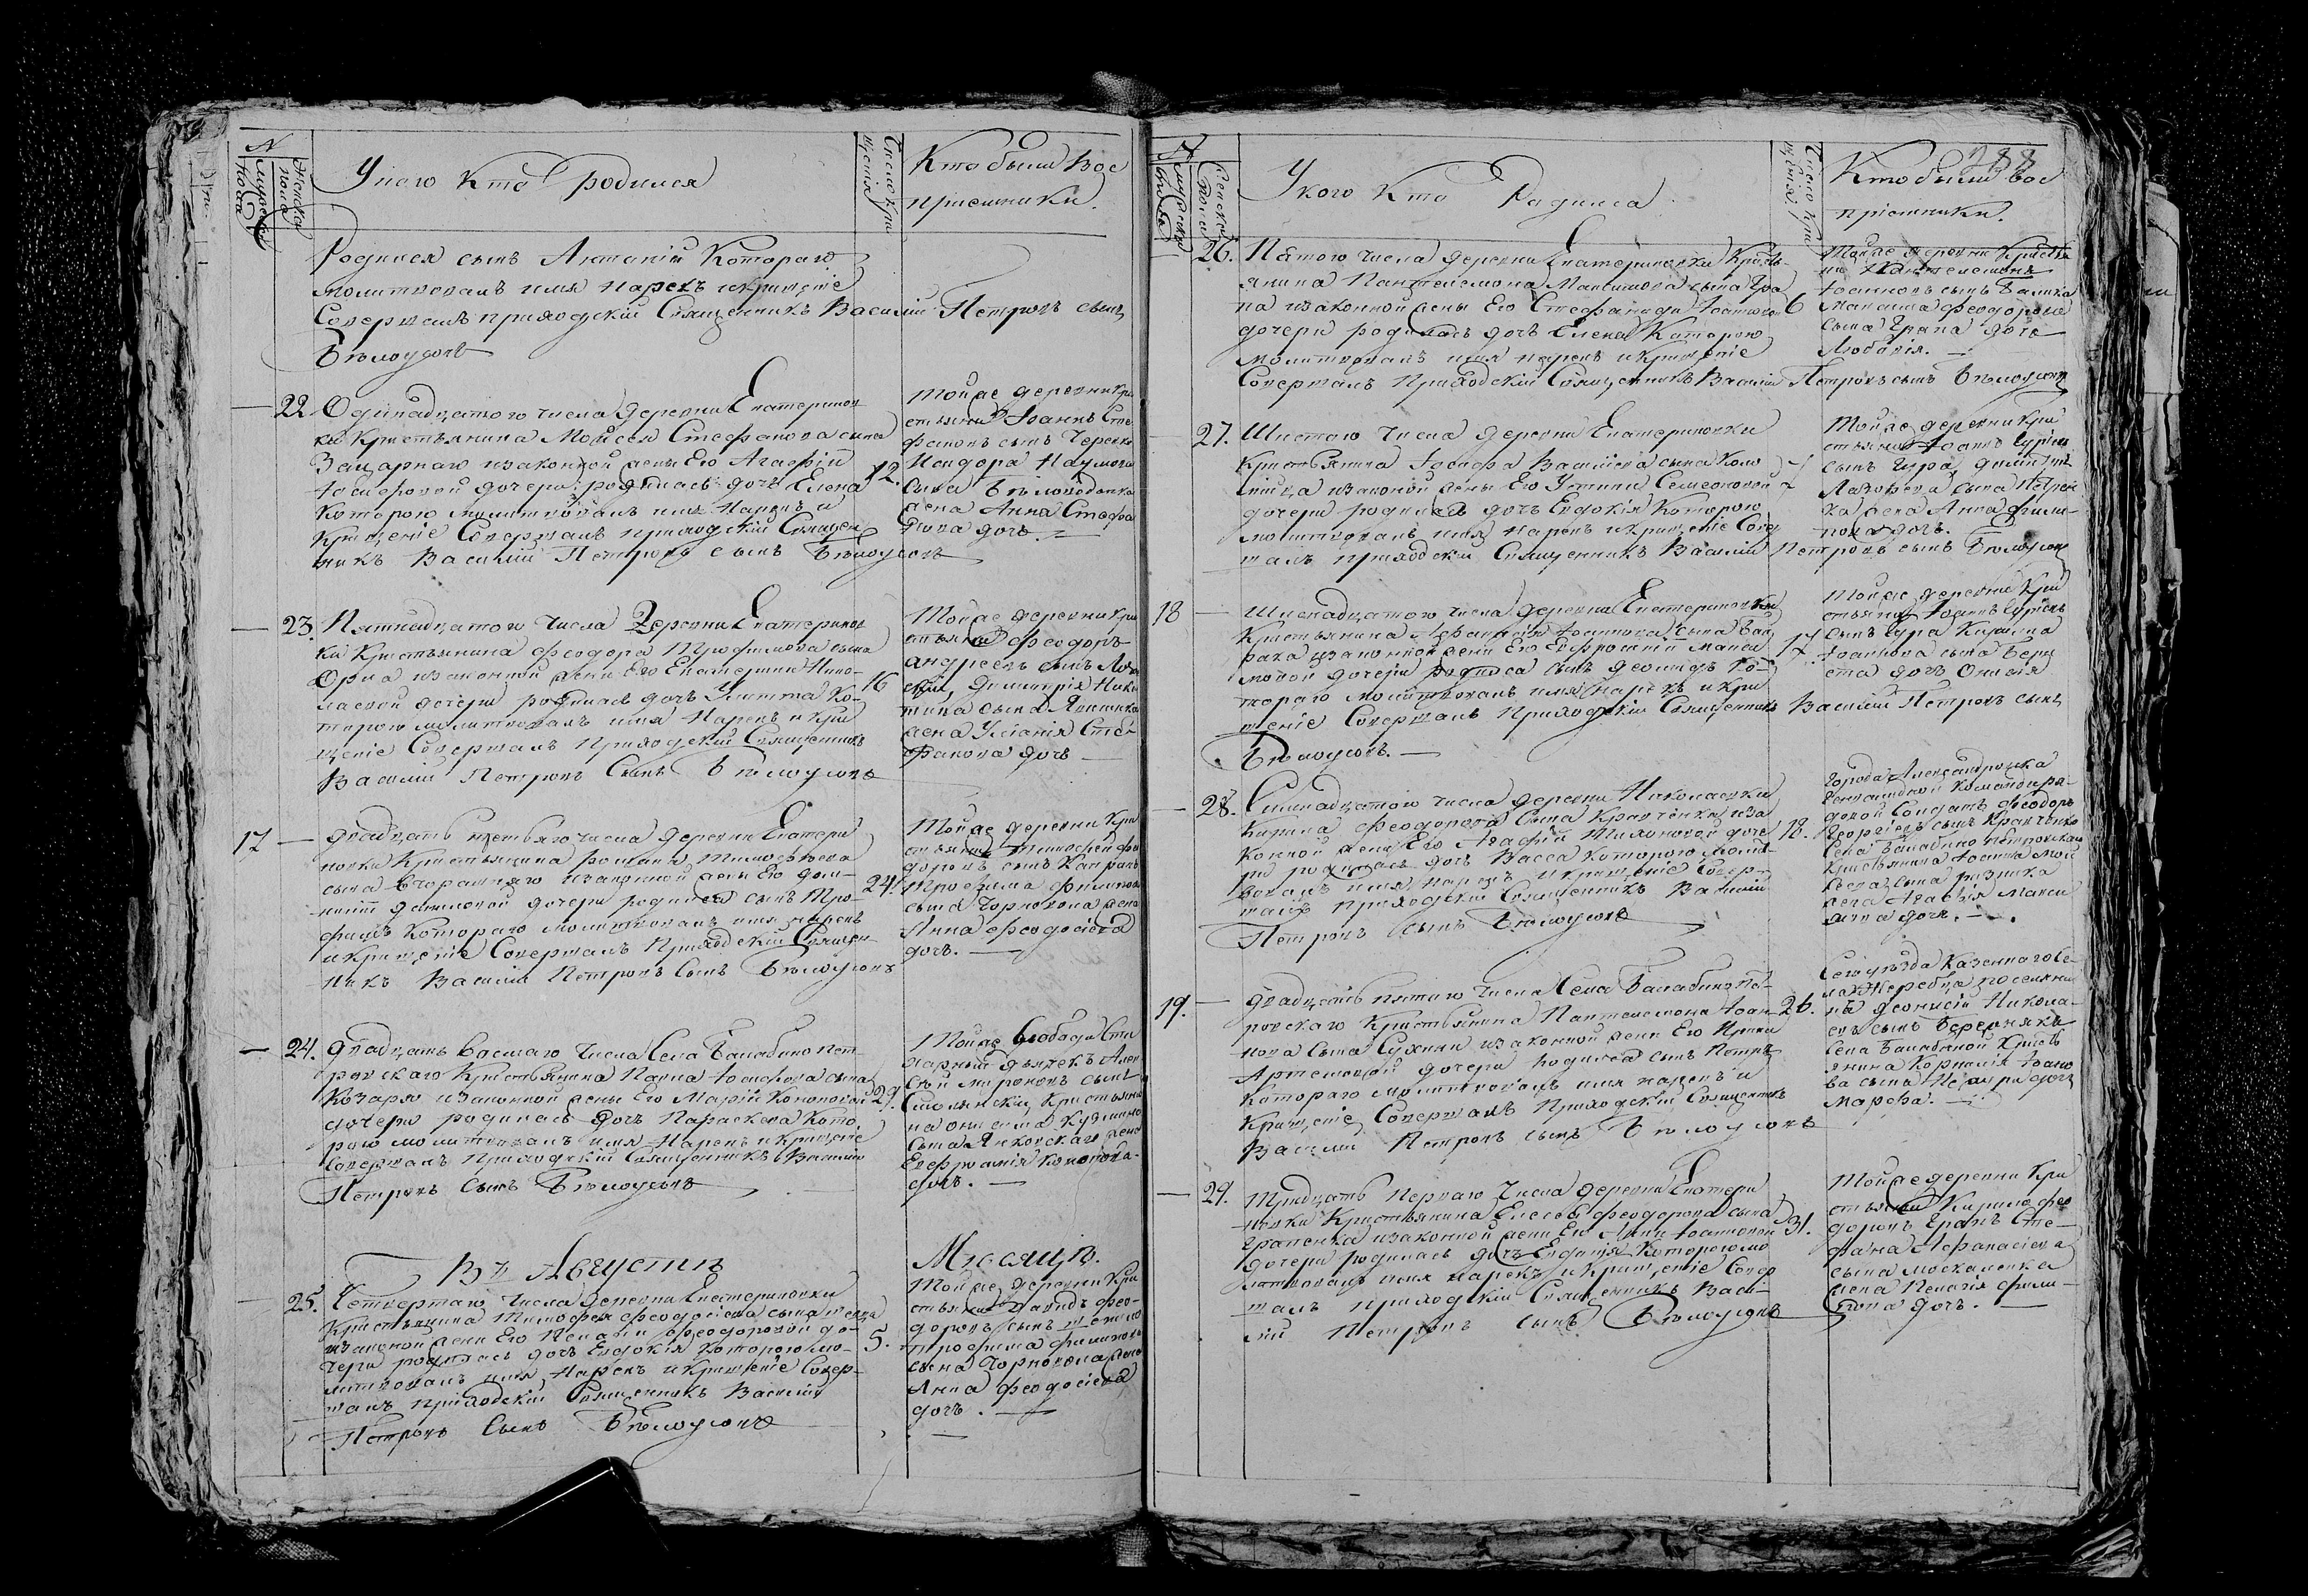 N
Мужеска пола
Женска пола
У кого кто родился
Число крещенія
Кто были вос
пріемники.
Родился сынъ Антоній Котораго
молитвовалъ имя нарекъ икрещеніе
Совершалъ приходскій Священникъ Василій Петровъ сынъ
Бѣлоусовъ
22. Одинадцатого числа деревни Екатеринов
ки Крестьянина Моисея Стефанова сына
изаконной жены Его Агафіи
Іосифовой дочери родилась дочь Елена
Которою молитвовалъ имя Нарекъ и
Крещеніе Совершалъ приходскій Священ
никъ Василій Петровъ сынъ Бѣлоусовъ
12.
Тойже деревни Кре
стьянинъ Іоаннъ Сте
фановъ сынъ
Исидора Наумова
сына
жена Анна Стефа
нова дочь.
23. Пятнадцатого Числа Деревни Екатеринов
ки Крестьянина Феодора Трофимова сына
Орла изаконной жены Его Екатерины Нико
лаевой дочери родилась дочь Улита Ко
торою молитвовалъ имя Нарекъ и Кре
щеніе Совершалъ Приходскій Священникъ
Василій Петровъ Сынъ Бѣлоусовъ
16
Тойже деревни Кре
стьянинъ Феодоръ
Андреевъ сынъ
Димитрія Ники
тина сына
жена Уліанія Сте
фанова дочь
17 Двадцать третьяго числа Деревни Екатери
новки Крестьянина Романа Тимофеева
сына изаконной жены Его Дом
никіи Даниловой дочери родился сынъ Тро
фимъ Котораго молитвовалъ имя нарекъ
икрещеніе Совершалъ Приходскій Священ
никъ Василій Петровъ Сынъ Бѣлоусовъ
24.
Тойже деревни Кре
стьянинъ Тимофей Фе
доровъ сынъ
Трофима Филипова
сына Чорновола жена
Анна Феодосіева
дочь.
24. Двадцать восмаго Числа Села Балабино Пет
ровскаго Крестьянина Павла Іосифова сына
Козаря изаконной жены Его Маріи Кононовой
дочери родилась Дочь Параскева Кото
рою молитвовалъ имя Нарекъ икрещеніе
Совершалъ Приходскій Священникъ Василій
Петровъ Сынъ Бѣлоусовъ
29.
Тойже Слободы
дьячекъ Алек
сѣй Мироновъ сынъ
крестьяни
на Онисима Кузмина
сына Янковскаго жена
Ефросинія Кононова
дочь.
Въ Августѣ Мѣсяцѣ.
25. Четвертаго Числа Деревни Екатериновки
Крестьянина Тимофея Феодосіева сына
изаконной жены Его Пелагіи Феодоровой до
чери родилась дочь Евдокія Которою мо
литвовалъ имя Нарекъ икрещеніе Совер
шалъ Приходскій Священникъ Василій
Петровъ Сынъ Бѣлоусовъ
5.
Тойже деревни Кре
стьянинъ Давидъ Фео
доровъ сынъ
Трофима Филипова
сына Чорновола жена
Анна Феодосіева
дочь.
288
N
Мужеска пола
Женска пола
У кого кто Родился
Число крещенія
Кто были вос
пріемники.
26. Пятого числа деревни Екатериновки Кресть
янина Пантелемона Максимова сына Гра
па изаконной жены Его Стефаниды Іоанновой
дочери родилась дочь Елена Которою
молитвовалъ имя нарекъ икрещеніе
Совершалъ Приходскій Священникъ Василій Петровъ сынъ Бѣлоусовъ
6
Тойже деревни Крестья
нинъ Пантелемонъ
Іоанновъ сынъ
Феодорова
сына Грапа дочь
27. Шестого Числа деревни Екатериновки
Крестьянина Іосифа Василіева сына Коло
мійца изаконой жены Его Устины Симеоновой
дочери родилась дочь Евдокія Которою
молитвовалъ имя нарекъ икрещеніе Совер
шалъ приходскій Священникъ Василій Петровъ сынъ Бѣлоусовъ
7
Тойже деревни Кре
стьянинъ Іоаннъ Гуріевъ
сынъ Гура, Димитрія
Лазорева сына Петрен
ка жена Анна Фили
пова дочь.
18 Шеснадцатого числа деревни Екатериновки
Крестьянина Афанасія Іоаннова сына
изаконной жены Его Ефросиніи Макси
мовой дочери родился сынъ Деомидъ Ко
тораго молитвовалъ имя нарекъ и кре
щеніе Совершалъ Приходскій Священникъ Василій Петровъ сынъ
Бѣлоусовъ.
17.
Тойже деревни Кре
стьянинъ Іоаннъ Гуріевъ
сынъ Гура Кирила
Іоаннова сына
дочь
28. Семнадцатого числа деревни Николаевки
Кирила Феодорова Сына Кравченка иза
конной жены Его Агафіи Тихоновой доче
ри родилась дочь Васса Которою молит
вовалъ имя нарекъ икрещеніе Совер
шалъ приходскій Священникъ Василій
Петровъ сынъ Бѣлоусовъ
18.
Города Александровска
Солдатъ Феодоръ
Георгіевъ сынъ Кравченко
Села Балабино Петровскаго
Крестьянина Іоанна Мои
сеева сына
жена Агафія Макси
мова дочь.
19. Двадцать пятого числа Села Балабино Пет
ровскаго Крестьянина Пантелемона Іоан
нова Сына изаконной жены Его Ирины
Артемовой дочери Родился сынъ Петръ
Котораго молитвовалъ имя нарекъ и
Крещеніе Совершалъ Приходскій Священникъ
Василій Петровъ сынъ Бѣлоусовъ
26.
Сего уѣзда Казенного Се
ла Жеребца поселяни
нъ Деонисій Никола
евъ сынъ Бережнякъ
Села Балабиной Кресть
янина Корнилія Іоано
ва сына дочь
Марфа.
29. Тридцать Перваго Числа деревни Екатери
новки Крестьянина Елисея Феодорова сына
Грапенка изаконной жены Его Анны Іоанновой
дочери родилась дочь Которою мо
литвовалъ имя нарекъ икрещеніе Совер
шалъ приходскій Священникъ Васи
лій Петровъ сынъ Бѣлоусовъ
31.
Тойже деревни Кре
стьянинъ Кирило Фео
доровъ Грапъ Сте
фана Афанасіева
сына Москаленка
жена Пелагія Фили
пова дочь.